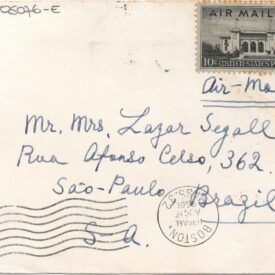 05076-E
AIR MAIL
10¢ UNITED STATES P
Air-Ma
Mr. Mrs. Lazar Segall
Rua Afonso Celso, 362.
São-Paulo, Brazil
S-A.
BOSTON
MASS.
AUG